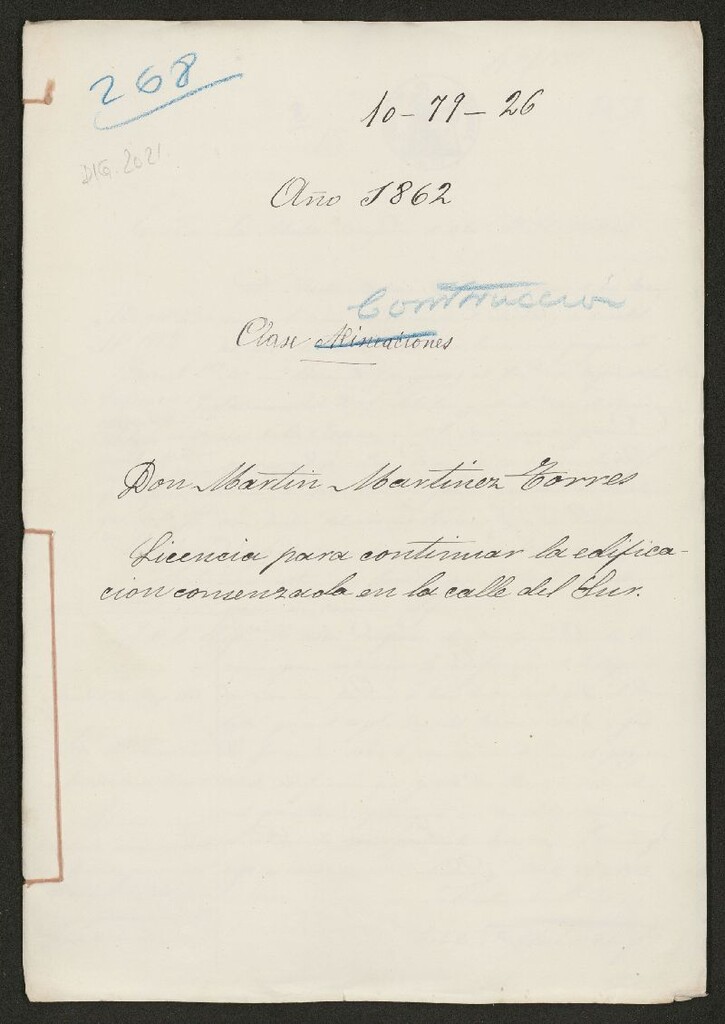 268
10-79-26
DIG. 2021
Año 1862
Construccion
Clase Alineaciones
Don Martin Martinez Torres
Licencia para continuar la edifica-
cion comenzada en la calle del Sur.